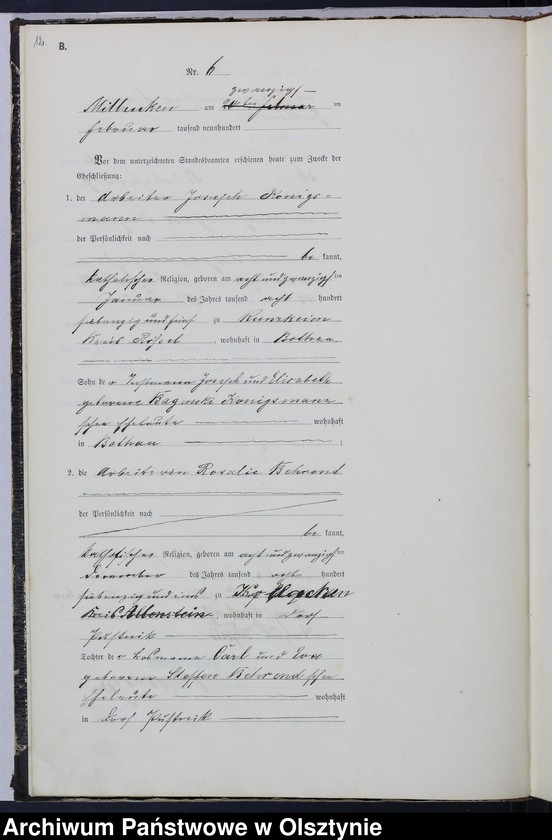 12.
B.
Nr. 6
zwanzigs
am ten
Februar tausend neunhundert
Vor dem unterzeichneten Standesbeamten erschienen heute zum Zwecke der
Eheschließung:
1. der Arbeiter Joseph Königs-
mann
der Persönlichkeit nach
be kannt,
katholischer Religion, geboren am acht und zwanzigsten
Januar des Jahres tausend acht hundert
siebenzig und fünf zu
Kreis Rössel, wohnhaft in Bothau
Sohn der Joseph und Elisabeth
geborene Baginski Königsmann
schen Eheleute wohnhaft
in Bothau ;
2. die Arbeiterin Rosalie Behrend
der Persönlichkeit nach
be kannt,
katholischer Religion, geboren am acht und zwanzigsten
des Jahres tausend acht hundert
siebenzig und eins zu
Kreis Allenstein, wohnhaft in Dorf
Pustnik
Tochter der Losmann Carl und Eva
geborene Steffen Behrend schen
Eheleute wohnhaft
in Dorf Pustnik
Archiwum Państwowe w Olsztynie